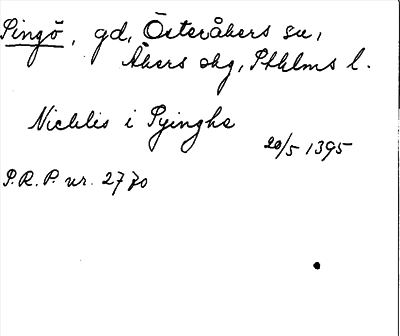 Pingö, gd, Österåkers sn,
Åkers skg, Sthlms l.
Nichlis i Pyinghe
20/5 1395
P.R.P. nr. 2770